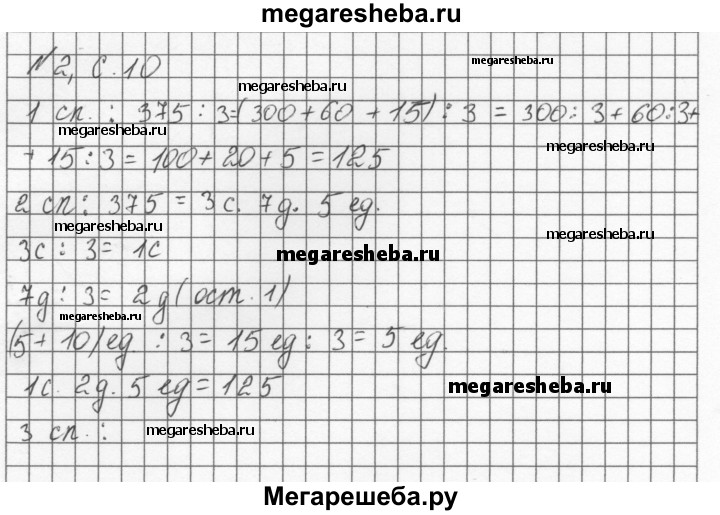 megaresheba.ru
№2, с.10
megaresheba.ru
megaresheba.ru
1 сп. : 375 : 3=(300+60 +15) : 3 = 300: 3+ 60:3+
megaresheba.ru
megaresheba.ru
+ 15 : 3 = 100+ 20 + 5 = 125
2 сп: 375 = 3с. 7д. 5 ед.
megaresheba.ru
megaresheba.ru
3с : 3= 1с
megaresheba.ru
7д : 3= 2д (ост. 1)
megaresheba.ru
(5+ 10) ед : 3= 15 ед: 3= 5 ед.
1с. 2д. 5 ед = 125
megaresheba.ru
3 сп. :
megaresheba.ru
Мегарешеба.ру